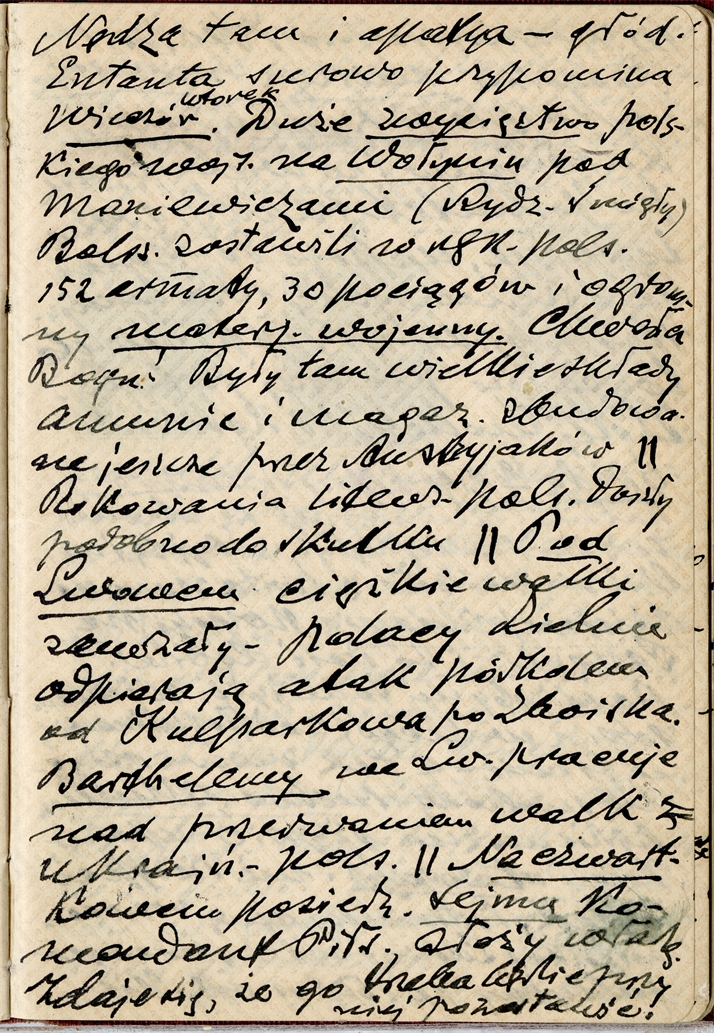 Nędza tam i apatya – głód.
Ententa surowo przypomina
wtorek
Duże zwycięstwo pols-
kiego wojs. na Wołyniu pod
Maniewiczami (Rydz-Śmigły)
Bols. zostawili w ręk. pols.
152 armaty, 30 pociągów i ogrom-
ny materj. wojenny. Chwała
Bogu! Były tam wielkie składy
amunic i magaz. zbudowa-
ne jeszcze przez Austryjaków ||
Rokowania litews-pols. doszły
podobno do skutku || Pod
Lwowem ciężkie walki
zawrzały – polacy dzielnie
odpierają atak półkolem
od Kulparkowa po Zboiska.
Barthelemy we Lw. pracuje
nad przerwaniem walk
ukraiń.- pols. || Na czwart-
kowem posiedz. sejmu Ko-
mendant Piłs. złoży władz.
Zdaje się, że go trzeba będzie przy
niej pozostawić!